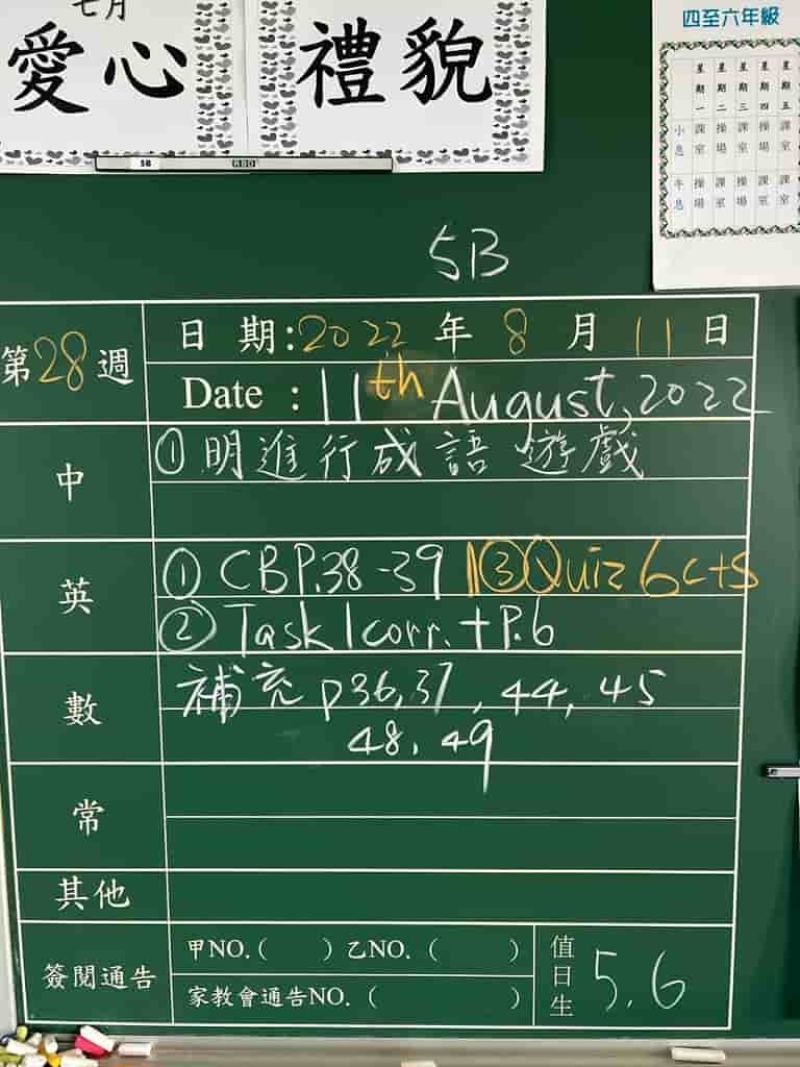 七月
愛心
禮貌
四至六年級
星期一 星期二 星期三 星期四 星期五
小息 課室 操場 課室 操場 課室
午息 操場 課室 操場 課室 課室
5B
第28週
日期:2022年8月11日
Date : 11th August, 2022
中
①明進行成語遊戲
英
① CBP.38-39 ③Quiz 6 cts
② Task 1 corr. + P.6
數
補充 p36,37, 44, 45
48, 49
常
其他
簽閱通告
甲NO.( ) 乙NO. ( )
家教會通告NO. ( )
值日生
5.6